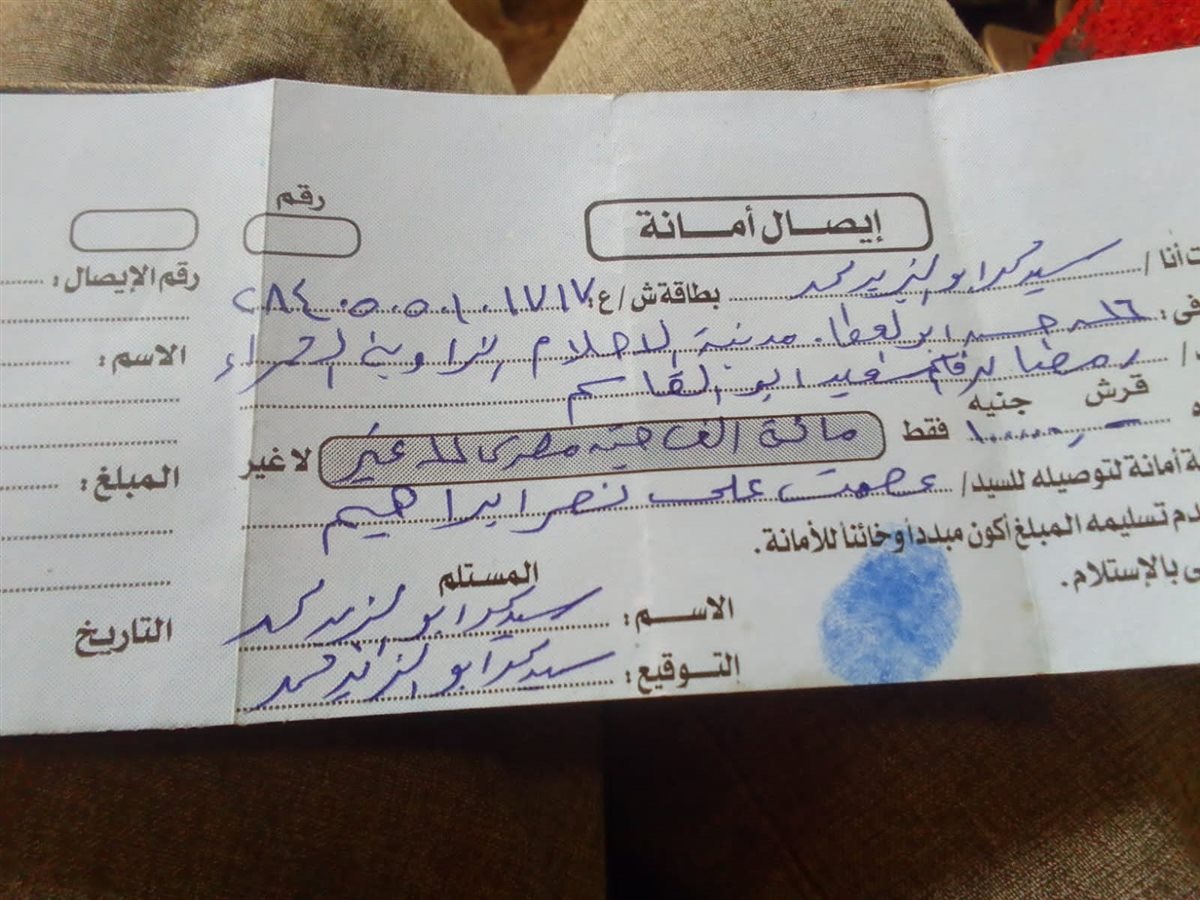 إيصال أمانة
رقم
ت أنا / سيد محمد ابو اليزيد محمد بطاقة ش/ع: ٢٨٤٠٥٠٥٠١٠١٧١٧
فى: ١٦ ابو العطا. مدينة الاحلام الزاوية الحمراء
د/ رمضان سيد ابو القاسم
قرش جنيه
ه ١٠٠٠٠٠ فقط مائة الف جنيه مصرى لا غير لا غير
ة أمانة لتوصيله للسيد/ عصمت على نصر ابراهيم
دم تسليمه المبلغ أكون مبدداً وخائناً للأمانة.
ى بالإستلام.
المستلم
الاسم: سيد محمد ابو اليزيد محمد
التوقيع: سيد محمد ابو اليزيد محمد
رقم الإيصال:
الاسم:
المبلغ:
التاريخ